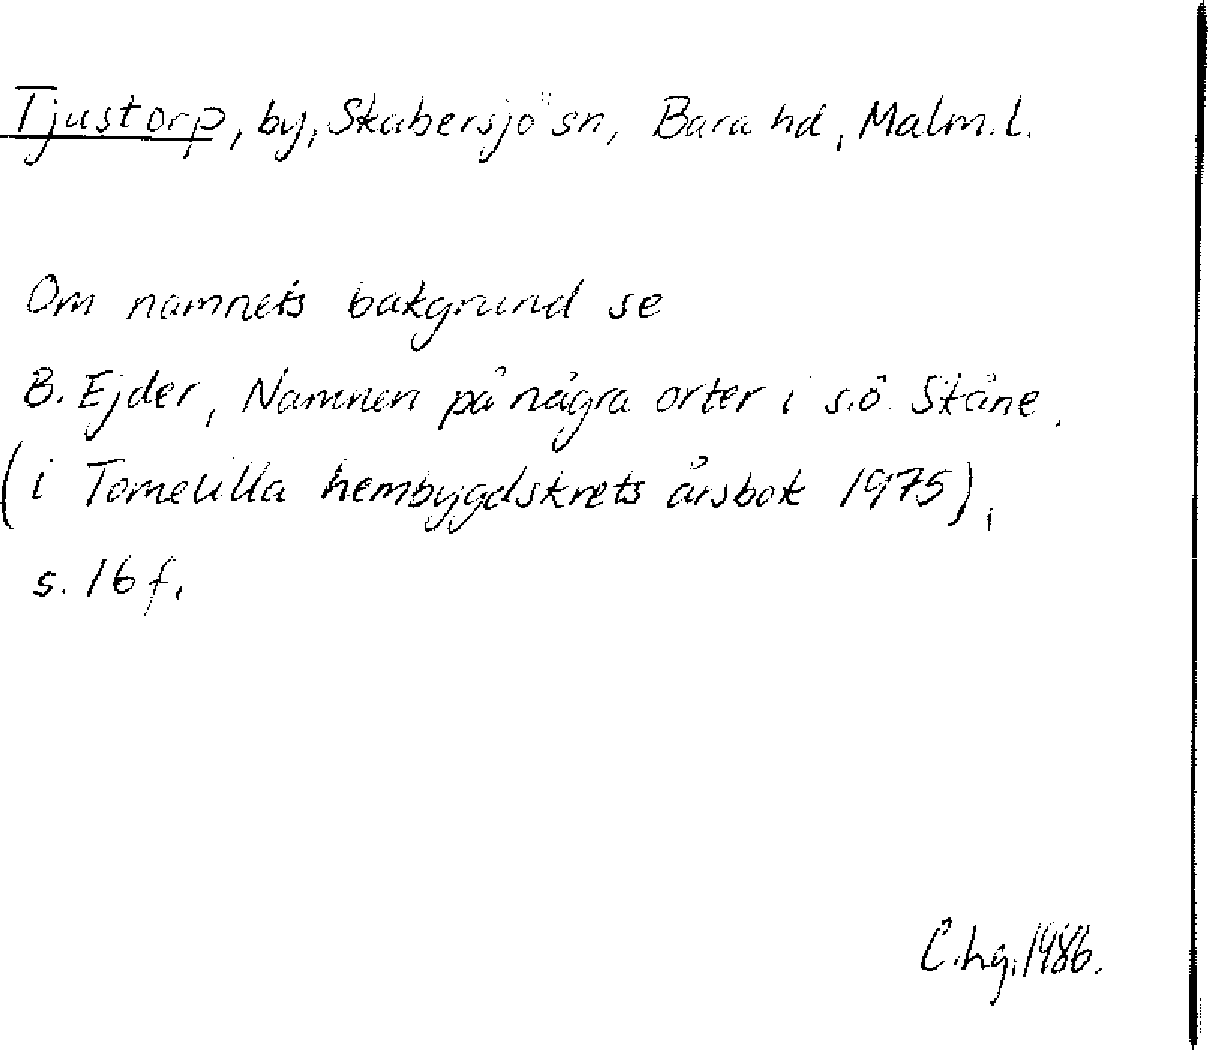 Tjustorp, by, Skabersjö sn, Bara hd, Malm. l.
Om namnets bakgrund se
B. Ejder, Namnen på några orter i s.ö. Skåne.
(i Tomelilla hembygdskrets årsbok 1975),
s. 16 f.
C.hg. 1986.